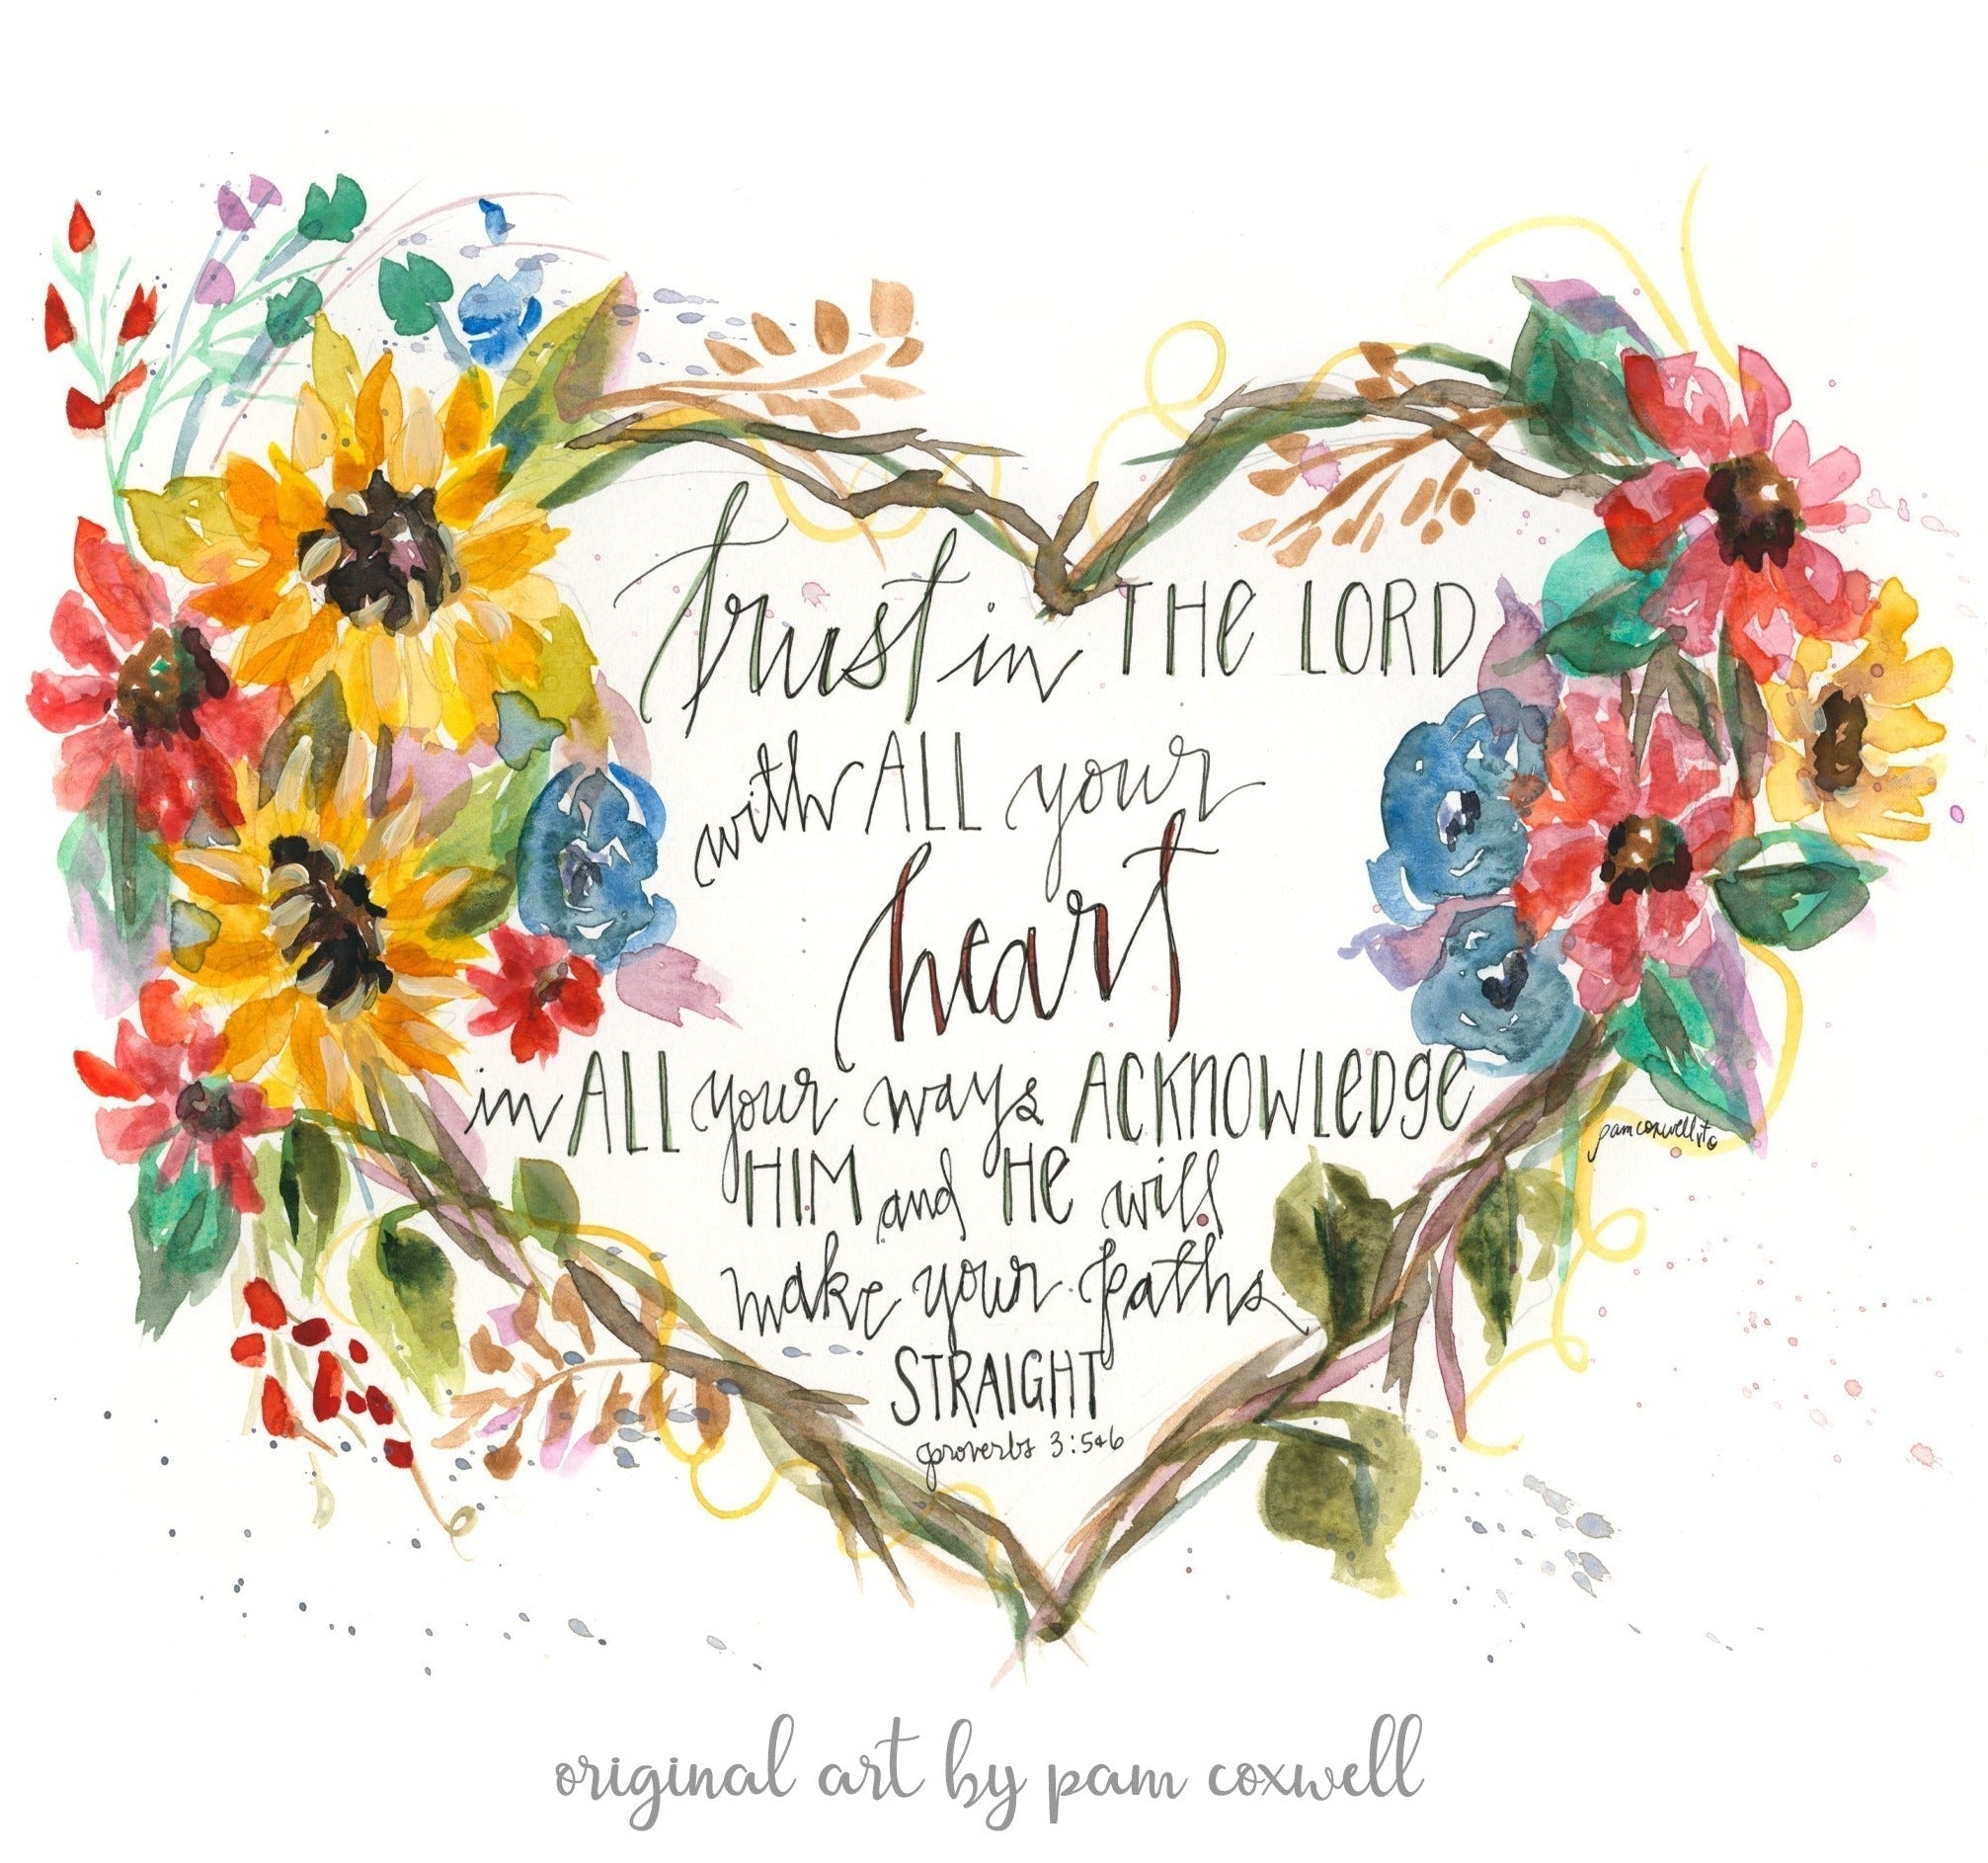 trust in THE LORD
with ALL your
heart
in ALL your ways ACKNOWLEDGE
HIM and HE will
make your paths
STRAIGHT
proverbs 3:5&6
pamcoxwell
original art by pam coxwell